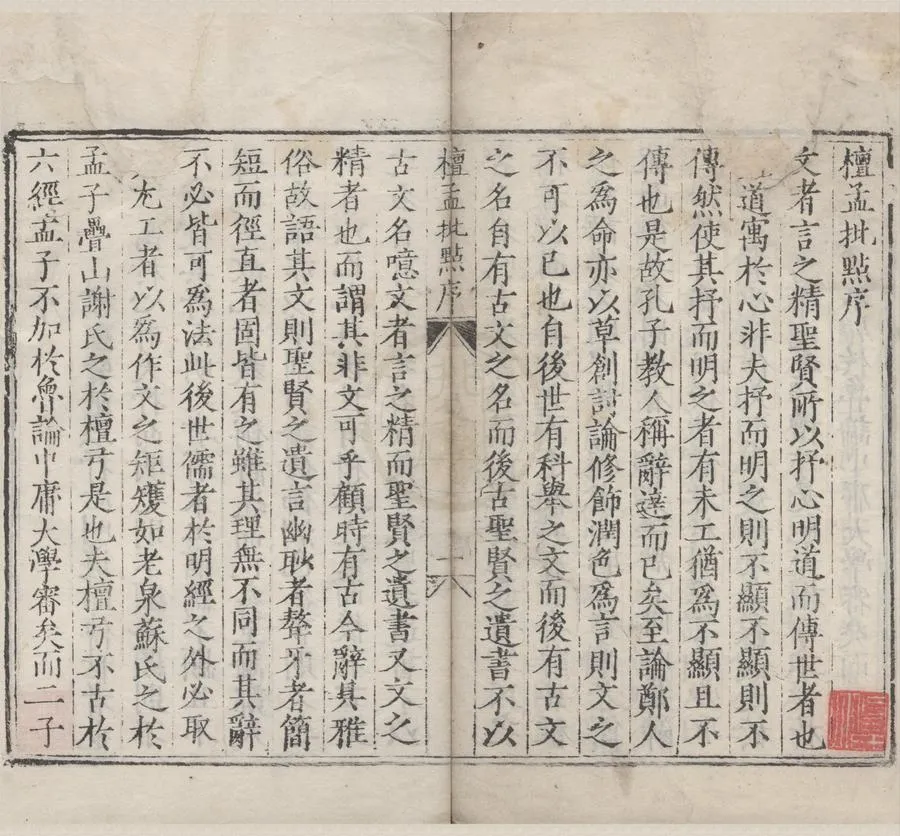 檀孟批點序
文者言之精聖賢所以抒心明道而傳世者也
道寓於心非夫抒而明之則不顯不顯則不
傳然使其抒而明之者有未工猶為不顯且不
傳也是故孔子教人稱辭達而已矣至論鄭人
之為命亦以草創討論修飾潤色為言則文之
不可以已也自後世有科舉之文而後有古文
之名自有古文之名而後古聖賢之遺書不以
檀孟批點序
一
古文名噫文者言之精而聖賢之遺書又文之
精者也而謂其非文可乎顧時有古今辭具雅
俗故語其文則聖賢之遺言幽眇者聱牙者簡
短而徑直者固皆有之雖其理無不同而其辭
不必皆可為法此後世儒者於明經之外必取
尤工者以為作文之矩矱如老泉蘇氏之於
孟子疊山謝氏之於檀弓是也夫檀弓不古於
六經孟子不加於魯論中庸大學審矣而二子